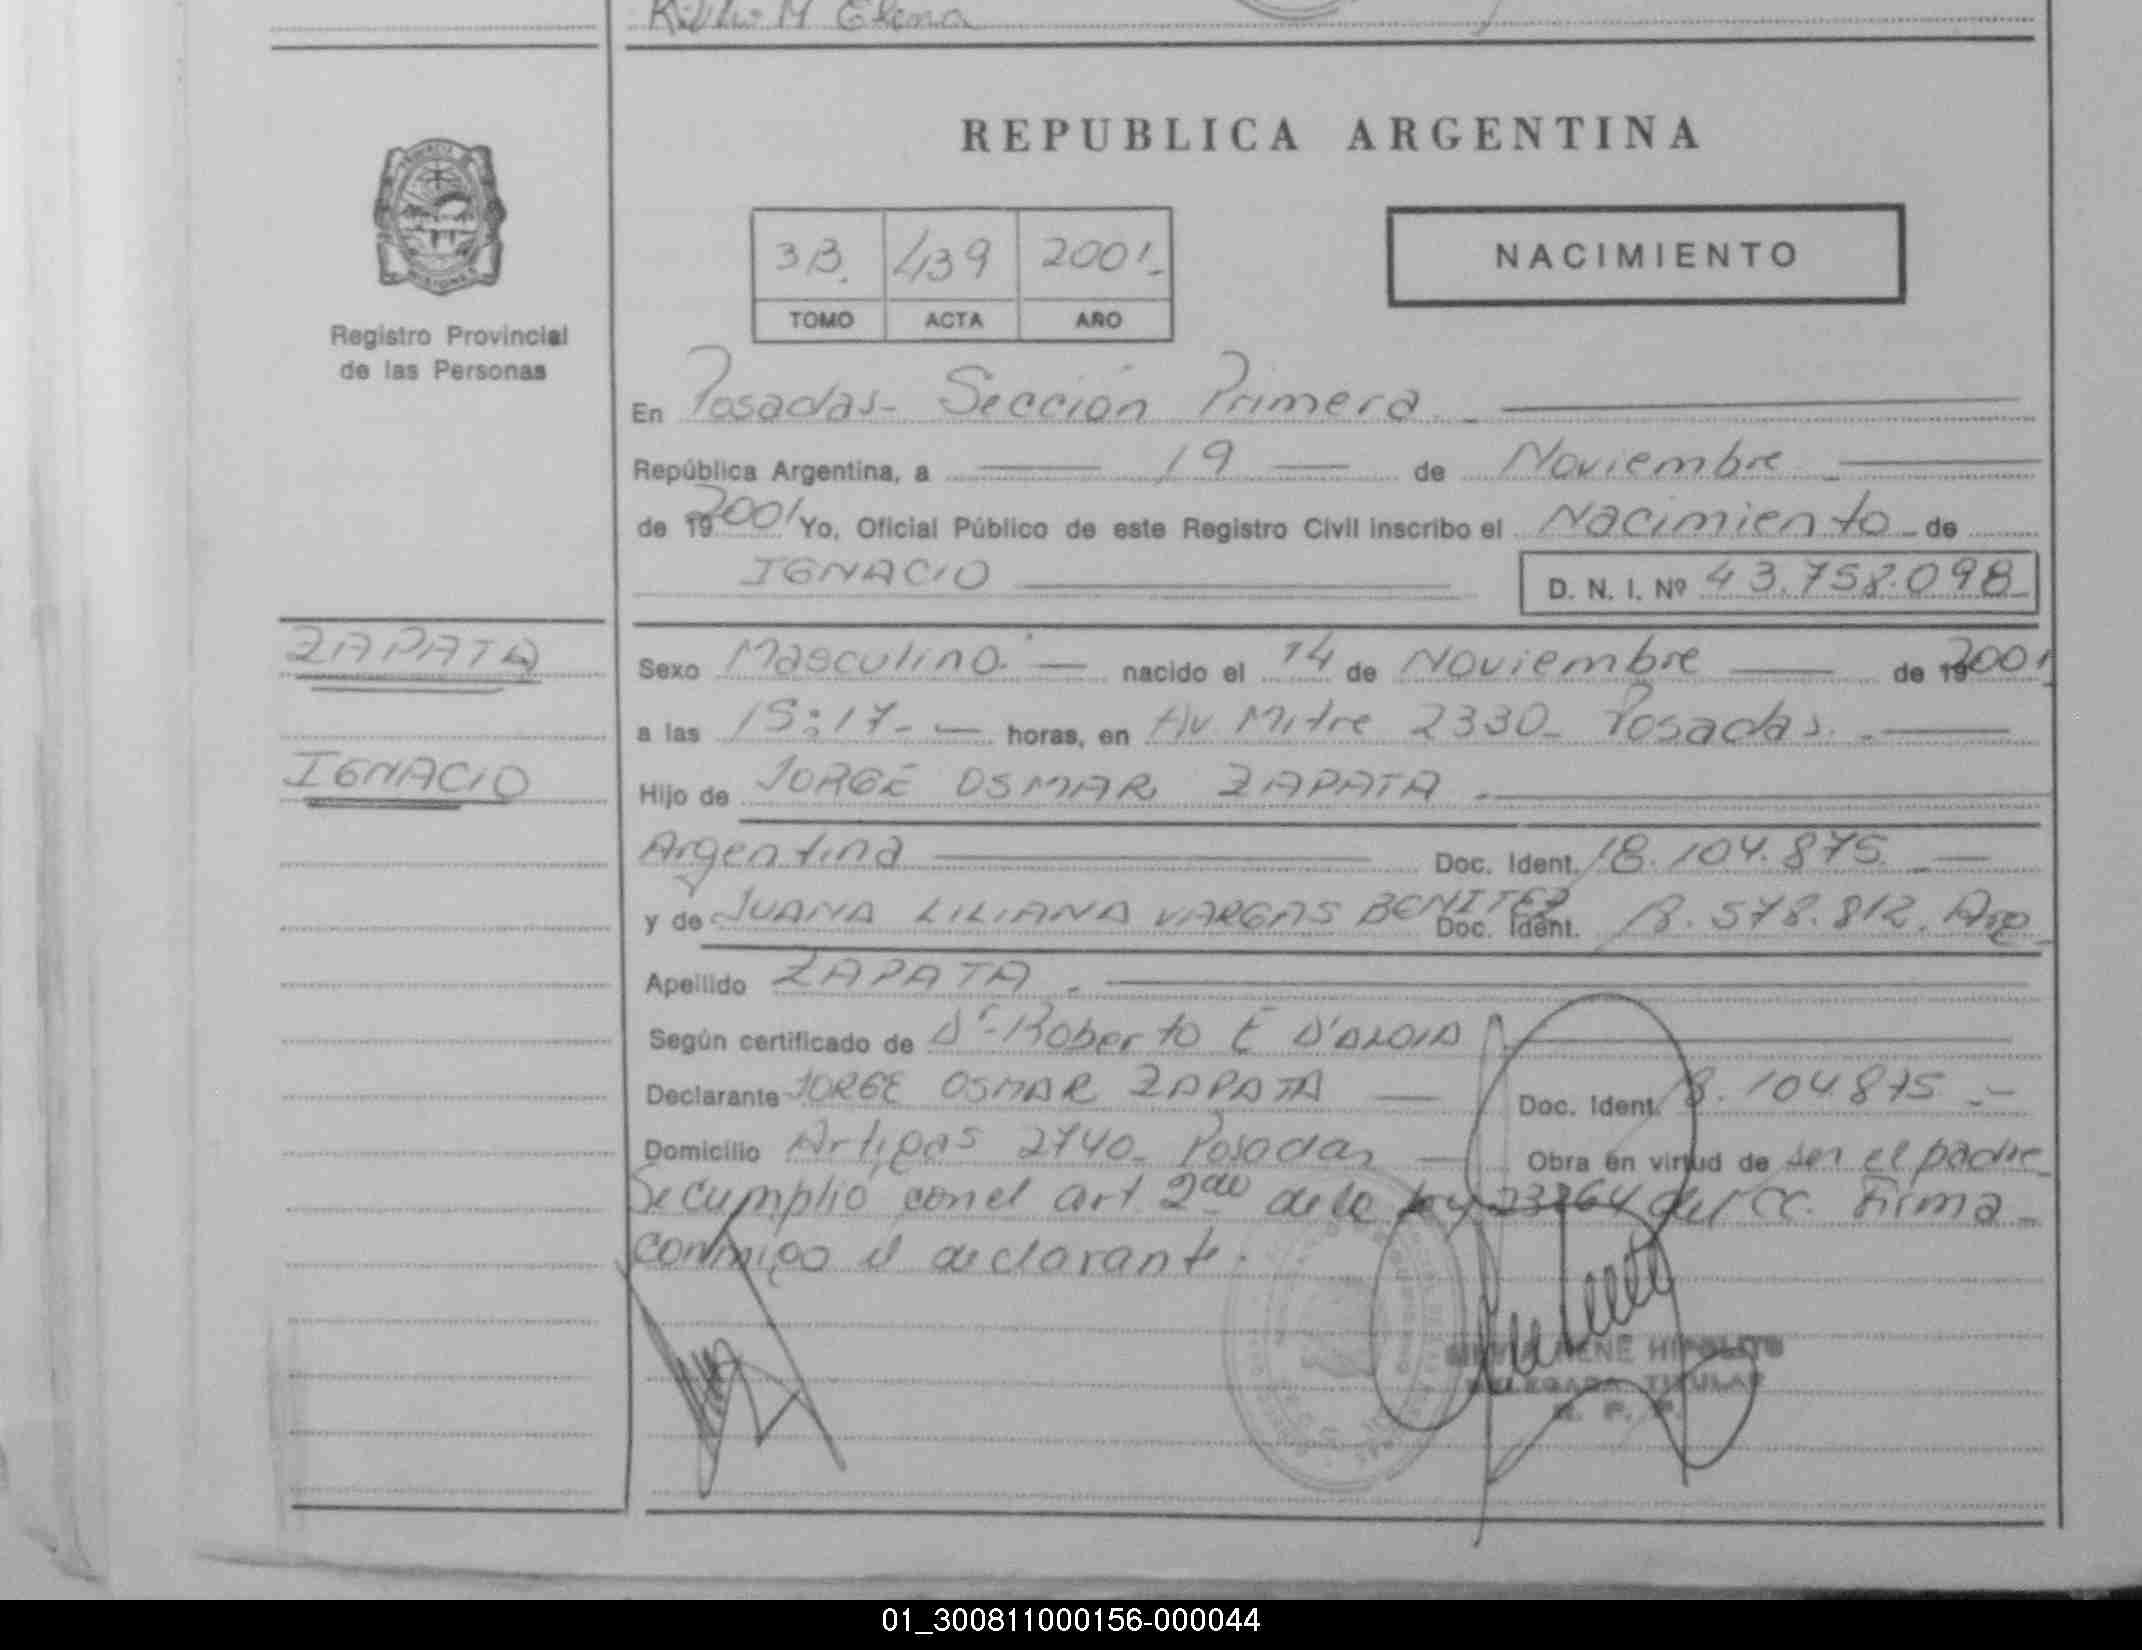 M Elena
REPUBLICA ARGENTINA
3B. 439 2001.-
TOMO ACTA AÑO
NACIMIENTO
Registro Provincial
de las Personas
En Posadas- Sección Primera.-
República Argentina, a 19 de Noviembre
de 192001 Yo, Oficial Público de este Registro Civil inscribo el Nacimiento de
IGNACIO D. N. I. Nº 43.758.098
ZAPATA
IGNACIO
Sexo Masculino. nacido el 14 de Noviembre de 192001
a las 15:17.- horas, en Av Mitre 2330- Posadas.-
Hijo de JORGE OSMAR ZAPATA.-
Argentina Doc. Ident. 18.104.875.-
y de JUANA LILIANA VARGAS BENITEZ Doc. Ident. 18.578.812. Arg.
Apellido ZAPATA.-
Según certificado de Dr. Roberto E D'ALOIA
Declarante JORGE OSMAR ZAPATA Doc. Ident. 18.104.875.-
Domicilio Artigas 2740- Posadas Obra en virtud de ser el padre
Se cumplió con el art. 2do de la ley 23264 del CC. Firma
conmigo el declarante.
RENE HIPOLITO
DELEGADA TITULAR
R. P. P.
01_300811000156-000044